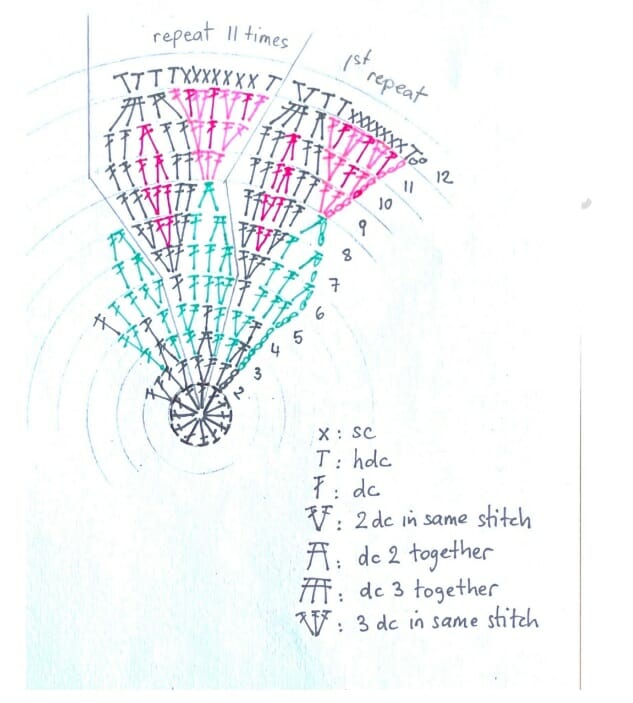 repeat 11 times
1st
repeat
12
11
10
9
8
7
6
5
4
3
2
x : sc
T : hdc
Ŧ : dc
: 2 dc in same stitch
: dc 2 together
: dc 3 together
: 3 dc in same stitch